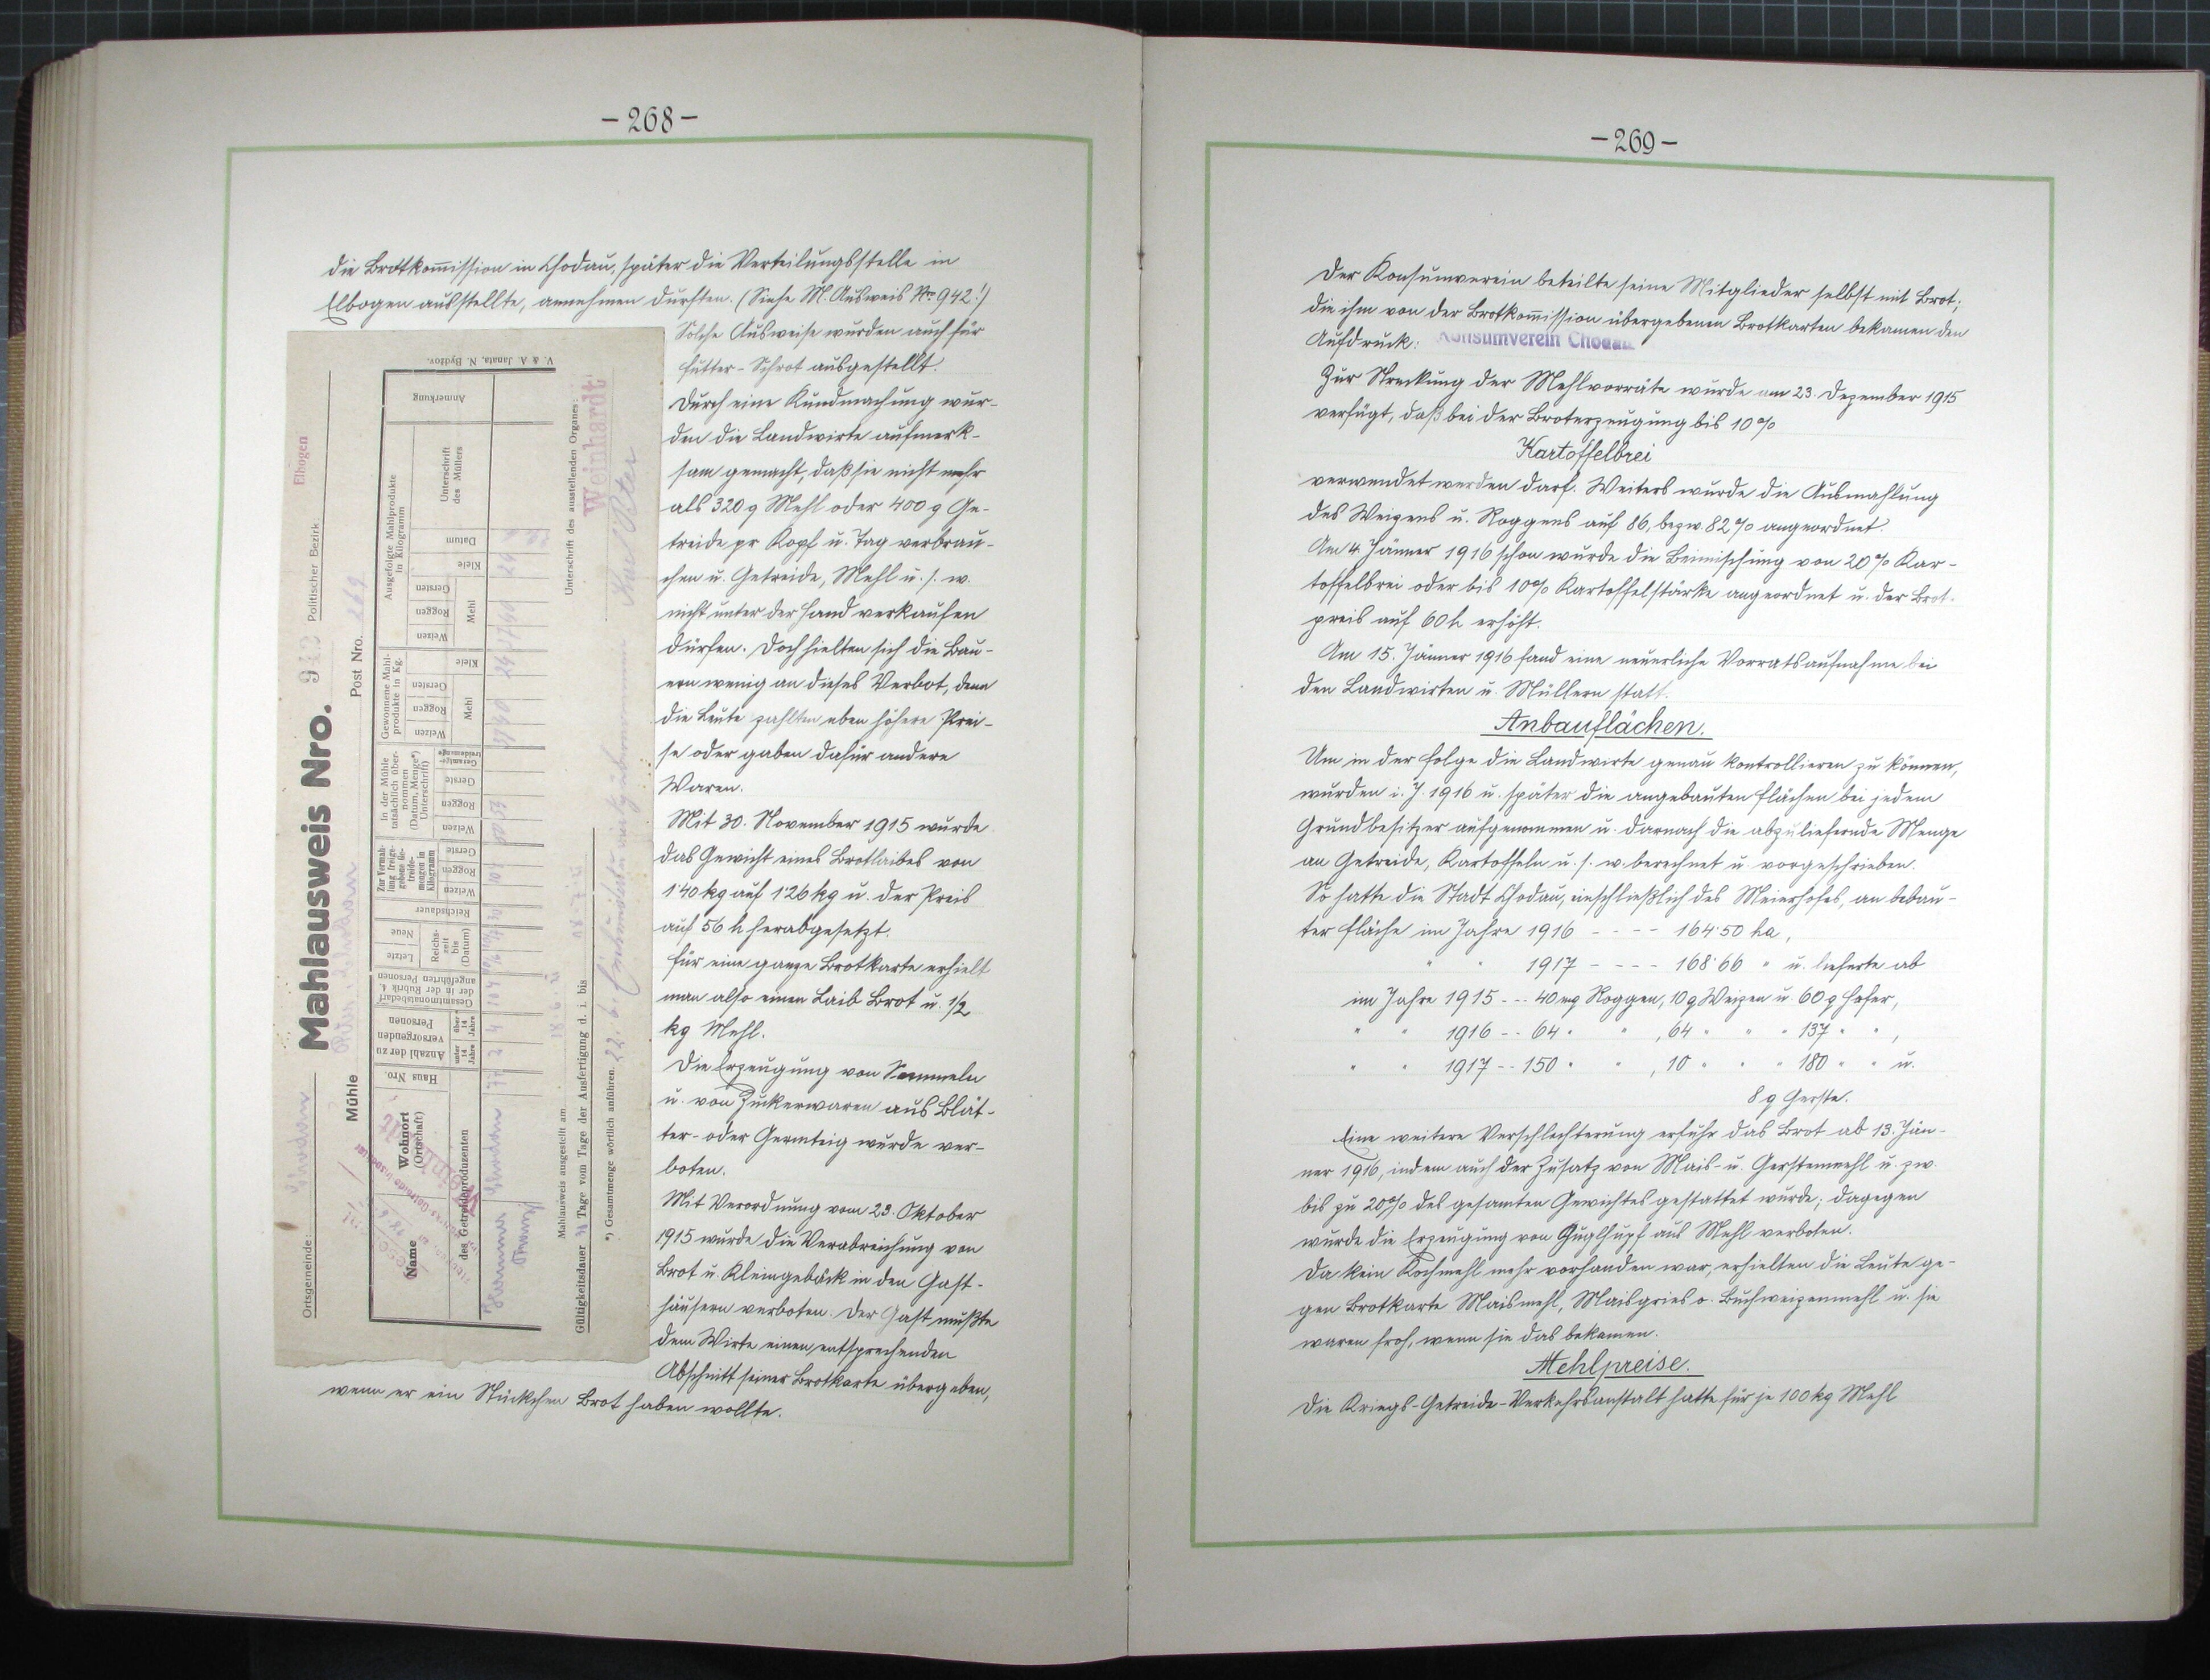 -268-
die Brotkom̄ission in Chodau, später die Verteilungsstelle in
Elbogen ausstellte, annehmen durften. (Siehe M. Ausweis No 942!)
Solche Ausweise wurden auch für
Futter-Schrot ausgestellt.
Durch eine Kundmachung wur-
den die Landwirte aufmerk-
sam gemacht, daß sie nicht mehr
als 320 g Mehl oder 400 g Ge-
treide pr Kopf u. Tag verbrau-
chen u. Getreide, Mehl u. s. w.
nicht unter der Hand verkaufen
dürfen. Doch hielten sich die Bau-
ern wenig an dieses Verbot, denn
die Leute zahlten eben höhere Prei-
se oder gaben dafür andere
Waren.
Mit 30. November 1915 wurde
das Gewicht eines Brotlaibes von
1'40 kg auf 1'26 kg u. der Preis
auf 56 h herabgesetzt.
Für eine ganze Brotkarte erhielt
man also einen Laib Brot u. 1/2
kg Mehl.
Die Erzeugung von Semmeln
u. von Zuckerwaren aus Blät-
ter- oder Germteig wurde ver-
boten.
Mit Verordnung vom 23. Oktober
1915 wurde die Verabreichung von
Brot u. Kleingebäck in den Gast-
häusern verboten. Der Gast mußte
dem Wirte einen entsprechenden
Abschnitt seiner Brotkarte übergeben,
wenn er ein Stückchen Brot haben wollte.
Ortsgemeinde: Chodau
Mahlausweis Nro. 942
Politischer Bezirk: Elbogen
Mühle
Post Nro. 269
Name
Wohnort
(Ortschaft)
des Getreideproduzenten
Haus Nro.
Anzahl der zu
versorgenden
Personen
unter
14
Jahre
über
14
Jahre
Gesamtmonatsbedarf
der in der Rubrik 4.
angeführten Personen
Letzte
Neue
Reichs-
zeit
bis
(Datum)
Reichsdauer
Zur Vermah-
lung freige-
gebene Ge-
treide-
mengen in
Kilogramm
Weizen
Roggen
Gerste
In der Mühle
tatsächlich über-
nommen
(Datum, Menge*)
Unterschrift)
Weizen
Roggen
Gerste
Gesamtge-
treidemenge
Gewonnene Mahl-
produkte in Kg.
Mehl
Weizen
Roggen
Gersten
Kleie
Ausgefolgte Mahlprodukte
in Kilogramm
Mehl
Weizen
Roggen
Gersten
Kleie
Datum
Unterschrift
des Müllers
Anmerkung
V. & A. Janata, N. Bydžov.
Chodau
Mahlausweis ausgestellt am
Gültigkeitsdauer Tage vom Tage der Ausfertigung d. i. bis
Unterschrift des ausstellenden Organes:
Weinhardt
*) Gesamtmenge wörtlich anführen.
-269-
Der Konsumverein beteilte seine Mitglieder selbst mit Brot;
die ihm von der Brotkom̄ission übergebenen Brotkarten bekamen den
Aufdruck: Konsumverein Chodau
Zur Streckung der Mehlvorräte wurde am 23. Dezember 1915
verfügt, daß bei der Broterzeugung bis 10%
Kartoffelbrei
verwendet werden darf. Weiters wurde die Ausmahlung
des Weizens u. Roggens auf 86, bezw 82% angeordnet.
Am 4. Jänner 1916 schon wurde die Beimischung von 20% Kar-
toffelbrei oder bis 10% Kartoffelstärke angeordnet u. der Brot-
preis auf 60 h erhöht.
Am 15. Jänner 1916 fand eine neuerliche Vorratsaufnahme bei
den Landwirten u. Müllern statt.
Anbauflächen.
Um in der Folge die Landwirte genau kontrollieren zu können,
wurden i. J. 1916 u. später die angebauten Flächen bei jedem
Grundbesitzer aufgenommen u. darnach die abzuliefernde Menge
an Getreide, Kartoffeln u. s. w. berechnet u. vorgeschrieben.
So hatte die Stadt Chodau, einschließlich des Meierhofes, an bebau-
ter Fläche im Jahre 1916 - - - - 164'50 ha,
" " 1917 - - - - 168'66 " u. lieferte ab
im Jahre 1915 - - 40 mq Roggen, 10 q Weizen u. 60 q Hafer,
" " 1916 - - 64 " " , 64 " " " 137 " " ,
" " 1917 - - 150 " " , 10 " " " 180 " " u.
8 q Gerste.
Eine weitere Verschlechterung erfuhr das Brot ab 13. Jän-
ner 1916, indem auch der Zusatz von Mais- u. Gerstenmehl u. zw.
bis zu 20% des gesamten Gewichtes gestattet wurde; dagegen
wurde die Erzeugung von Guglhupf aus Mehl verboten.
Da kein Kochmehl mehr vorhanden war, erhielten die Leute ge-
gen Brotkarte Maismehl, Maisgries o. Buchweizenmehl u. sie
waren froh, wenn sie das bekamen.
Mehlpreise.
Die Kriegs-Getreide-Verkehrsanstalt hatte für je 100 kg Mehl